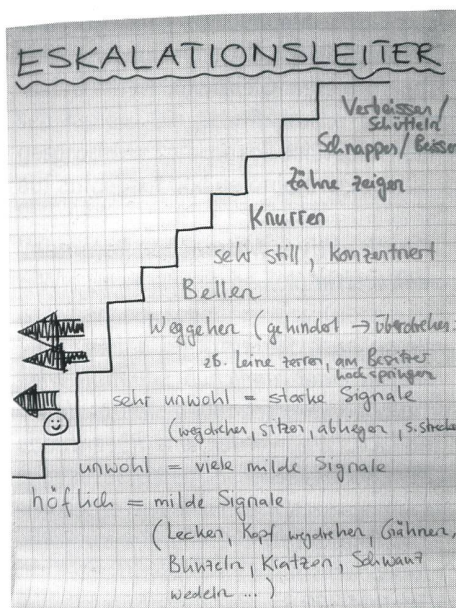 ESKALATIONSLEITER
Verbeissen/
Schütteln
Schnappen/Beissen
Zähne zeigen
Knurren
sehr still, konzentriert
Bellen
Weggehen (gehindert → überdrehen:
zB. Leine zerren, am Besitzer
hochspringen
sehr unwohl = starke Signale
(wegdrehen, sitzen, abliegen, s. strecken
unwohl = viele milde Signale
höflich = milde Signale
(Lecken, Kopf wegdrehen, Gähnen,
Blinzeln, Kratzen, Schwanz
wedeln ...)